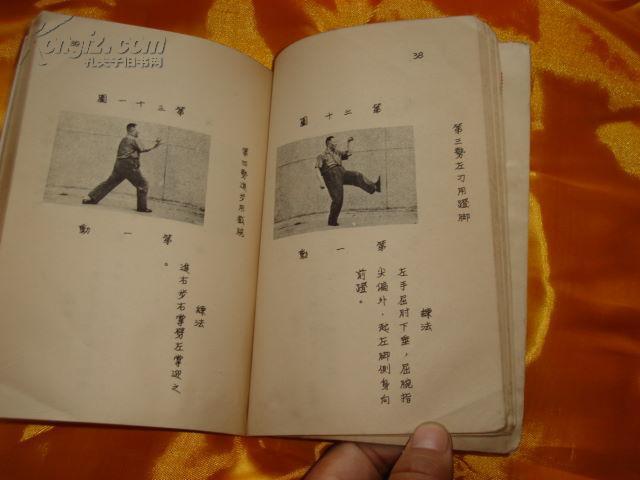 38
第三勢左刁用蹬脚
第三十圖
第一動
練法
左手屈肘下垂，屈腕指
尖偏外，起左脚側身向
前蹬。
39
第四勢進步用截腕
第三十一圖
第一動
練法
進右步右掌劈左掌迎之
。
Kongfz.com
孔夫子旧书网